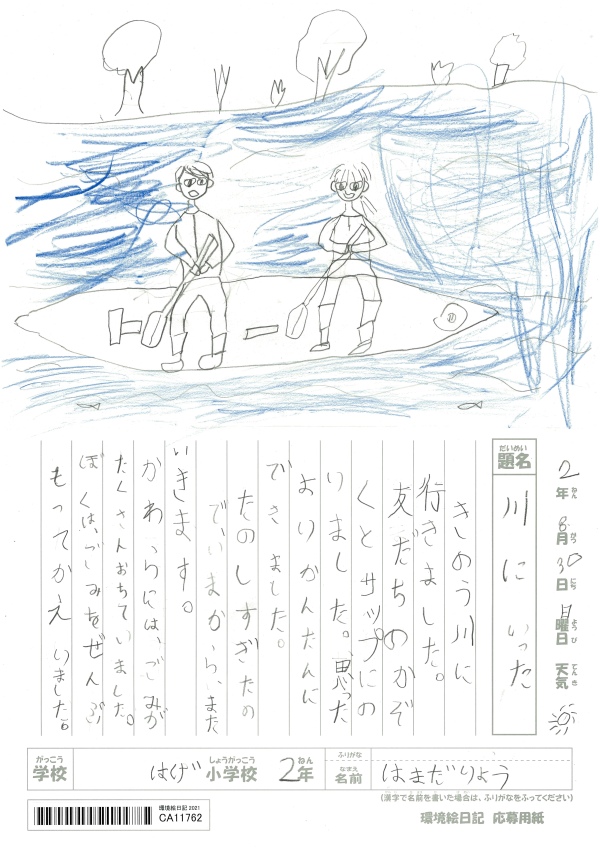 2年8月30日日曜日 天気
ねん がつ にち ようび てんき
だいめい
題名
川にいった
きのう川に
行きました。
友だちのかぞ
くとサップにの
りました。思った
よりかんたんに
できました。
たのしすぎたの
で、いまからいまた
いきます。
かわらには、ごみが
たくさんおちていました。
ぼくは、ごみをぜんぶ
もってかえいました。
がっこう
学校
はげ
しょうがっこう
小学校
2年
ねん
ふりがな
なまえ
名前
はまだりょう
(漢字で名前を書いた場合は、ふりがなをふってください)
環境絵日記 2021
CA11762
環境絵日記 応募用紙